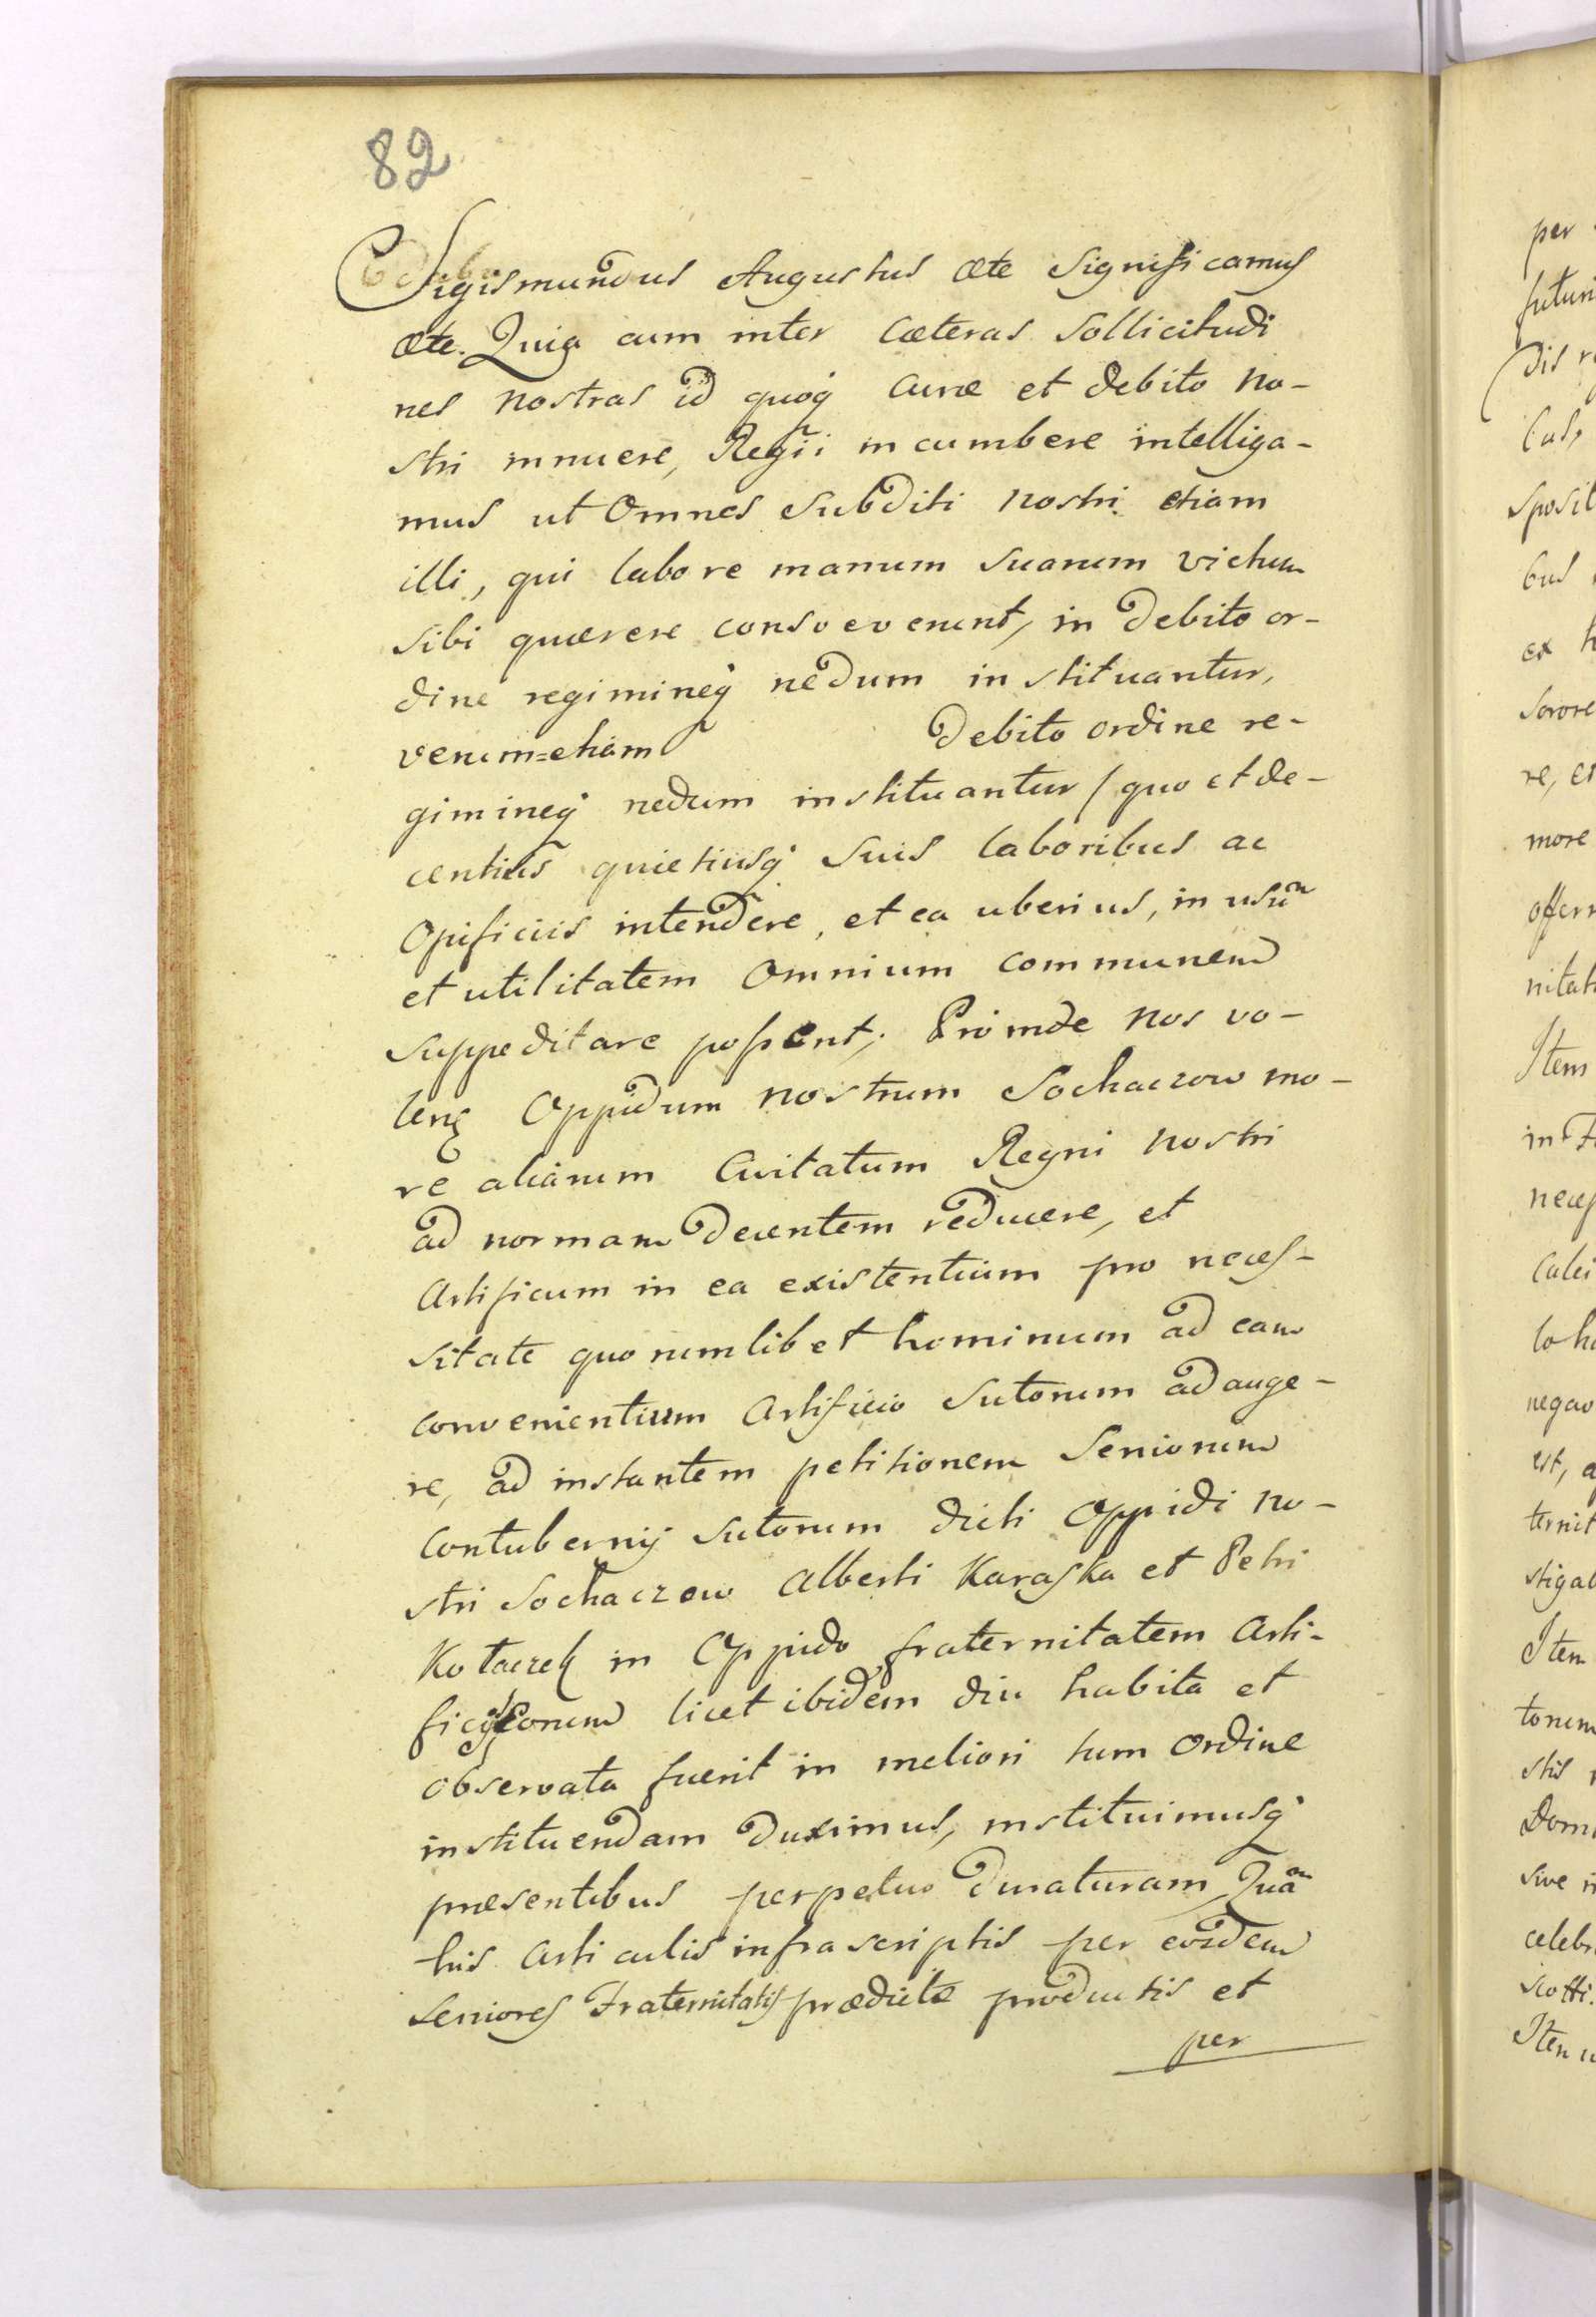 82
Sigismundus Augustus æte Significamus
æte. Quia cum inter Cæteras Sollicitudi
nes nostras id quoq curæ et debito no-
stri innuere, Regii incumbere intelliga-
mus ut Omnes Subditi nostri etiam
illi, qui labore manum suarum victum
sibi quærere consveverunt, in debito or-
dine regimineq nedum instituantur,
verum=etiam debito ordine re-
gimineq nedum instituantur / quo et de-
centius quietiusq suis laboribus ac
Opificiis intendere, et ea uberius, in usum
et utilitatem Omnium communem
suppeditare possent; Proinde nos vo-
lens Oppidum nostrum Sochaczow mo-
re aliarum Civitatum Regni nostri
ad normam decentem reducere, et
Artificum in ea existentium pro neces-
sitate quorumlibet hominum ad eam
convenientium Artificio Sutorum adauge-
re, ad instantem petitionem Seniorum
Contubernij Sutorum dicti Oppidi no-
stri Sochaczow Alberti Karaska et Petri
Kołaczek in Oppido fraternitatem Arti-
ficij eorum licet ibidem diu habita et
observata fuerit in meliori tum Ordine
instituendam duximus, instituimusq
præsentibus perpetuo duraturam Quam
his Articulis infrascriptis per eosdem
Seniores Fraternitatis prædictæ productis et
per
per
futuri
dis
sposit
bus
ex
Sorore
re, et
more
offerr
nitat
Item
in
neces
calci
negav
est,
ternit
stigab
Item
torum
stis
Domi
sive
celebr
scotti.
Item